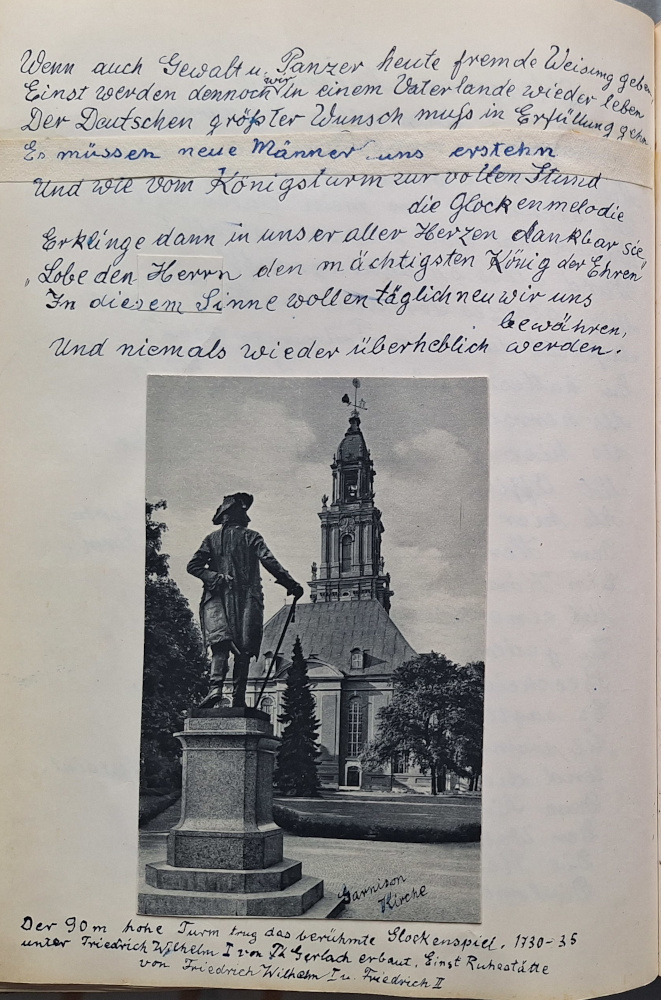 Wenn auch Gewalt u. Panzer heute fremde Weisung geben,
Einst werden dennoch wir in einem Vaterlande wieder leben
Der Deutschen größter Wunsch muß in Erfüllung gehn
Es müssen neue Männer uns erstehn
Und wie vom Königsturm zur vollen Stund
die Glockenmelodie
Erklinge dann in unser aller Herzen dankbar sie,
"Lobe den Herrn den mächtigsten König der Ehren"
In diesem Sinne wollen täglich neu wir uns
bewähren,
Und niemals wieder überheblich werden.
Garnison
Kirche
Der 90 m hohe Turm trug das berühmte Glockenspiel, 1730-35
unter Friedrich Wilhelm I von Ph Gerlach erbaut. Einst Ruhestätte
von Friedrich Wilhelm I u. Friedrich II